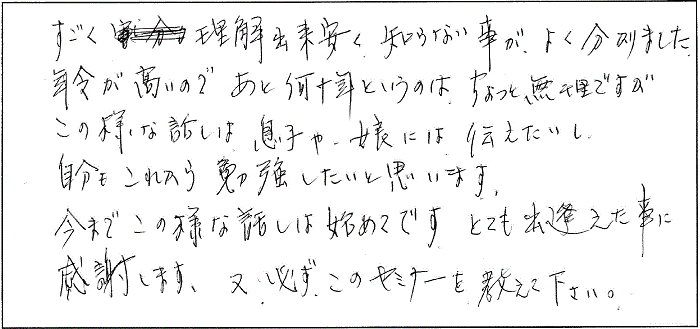 すごく理解出来安く、知らない事が、よく分りました
年令が高いので あと何十年というのは、ちょっと無理ですが
この様な話しは 息子や、娘には 伝えたいし、
自分もこれから勉強したいと思います。
今までこの様な話しは始めてです とても出逢えた事に
感謝します、又、必ず、このセミナーを教えて下さい。